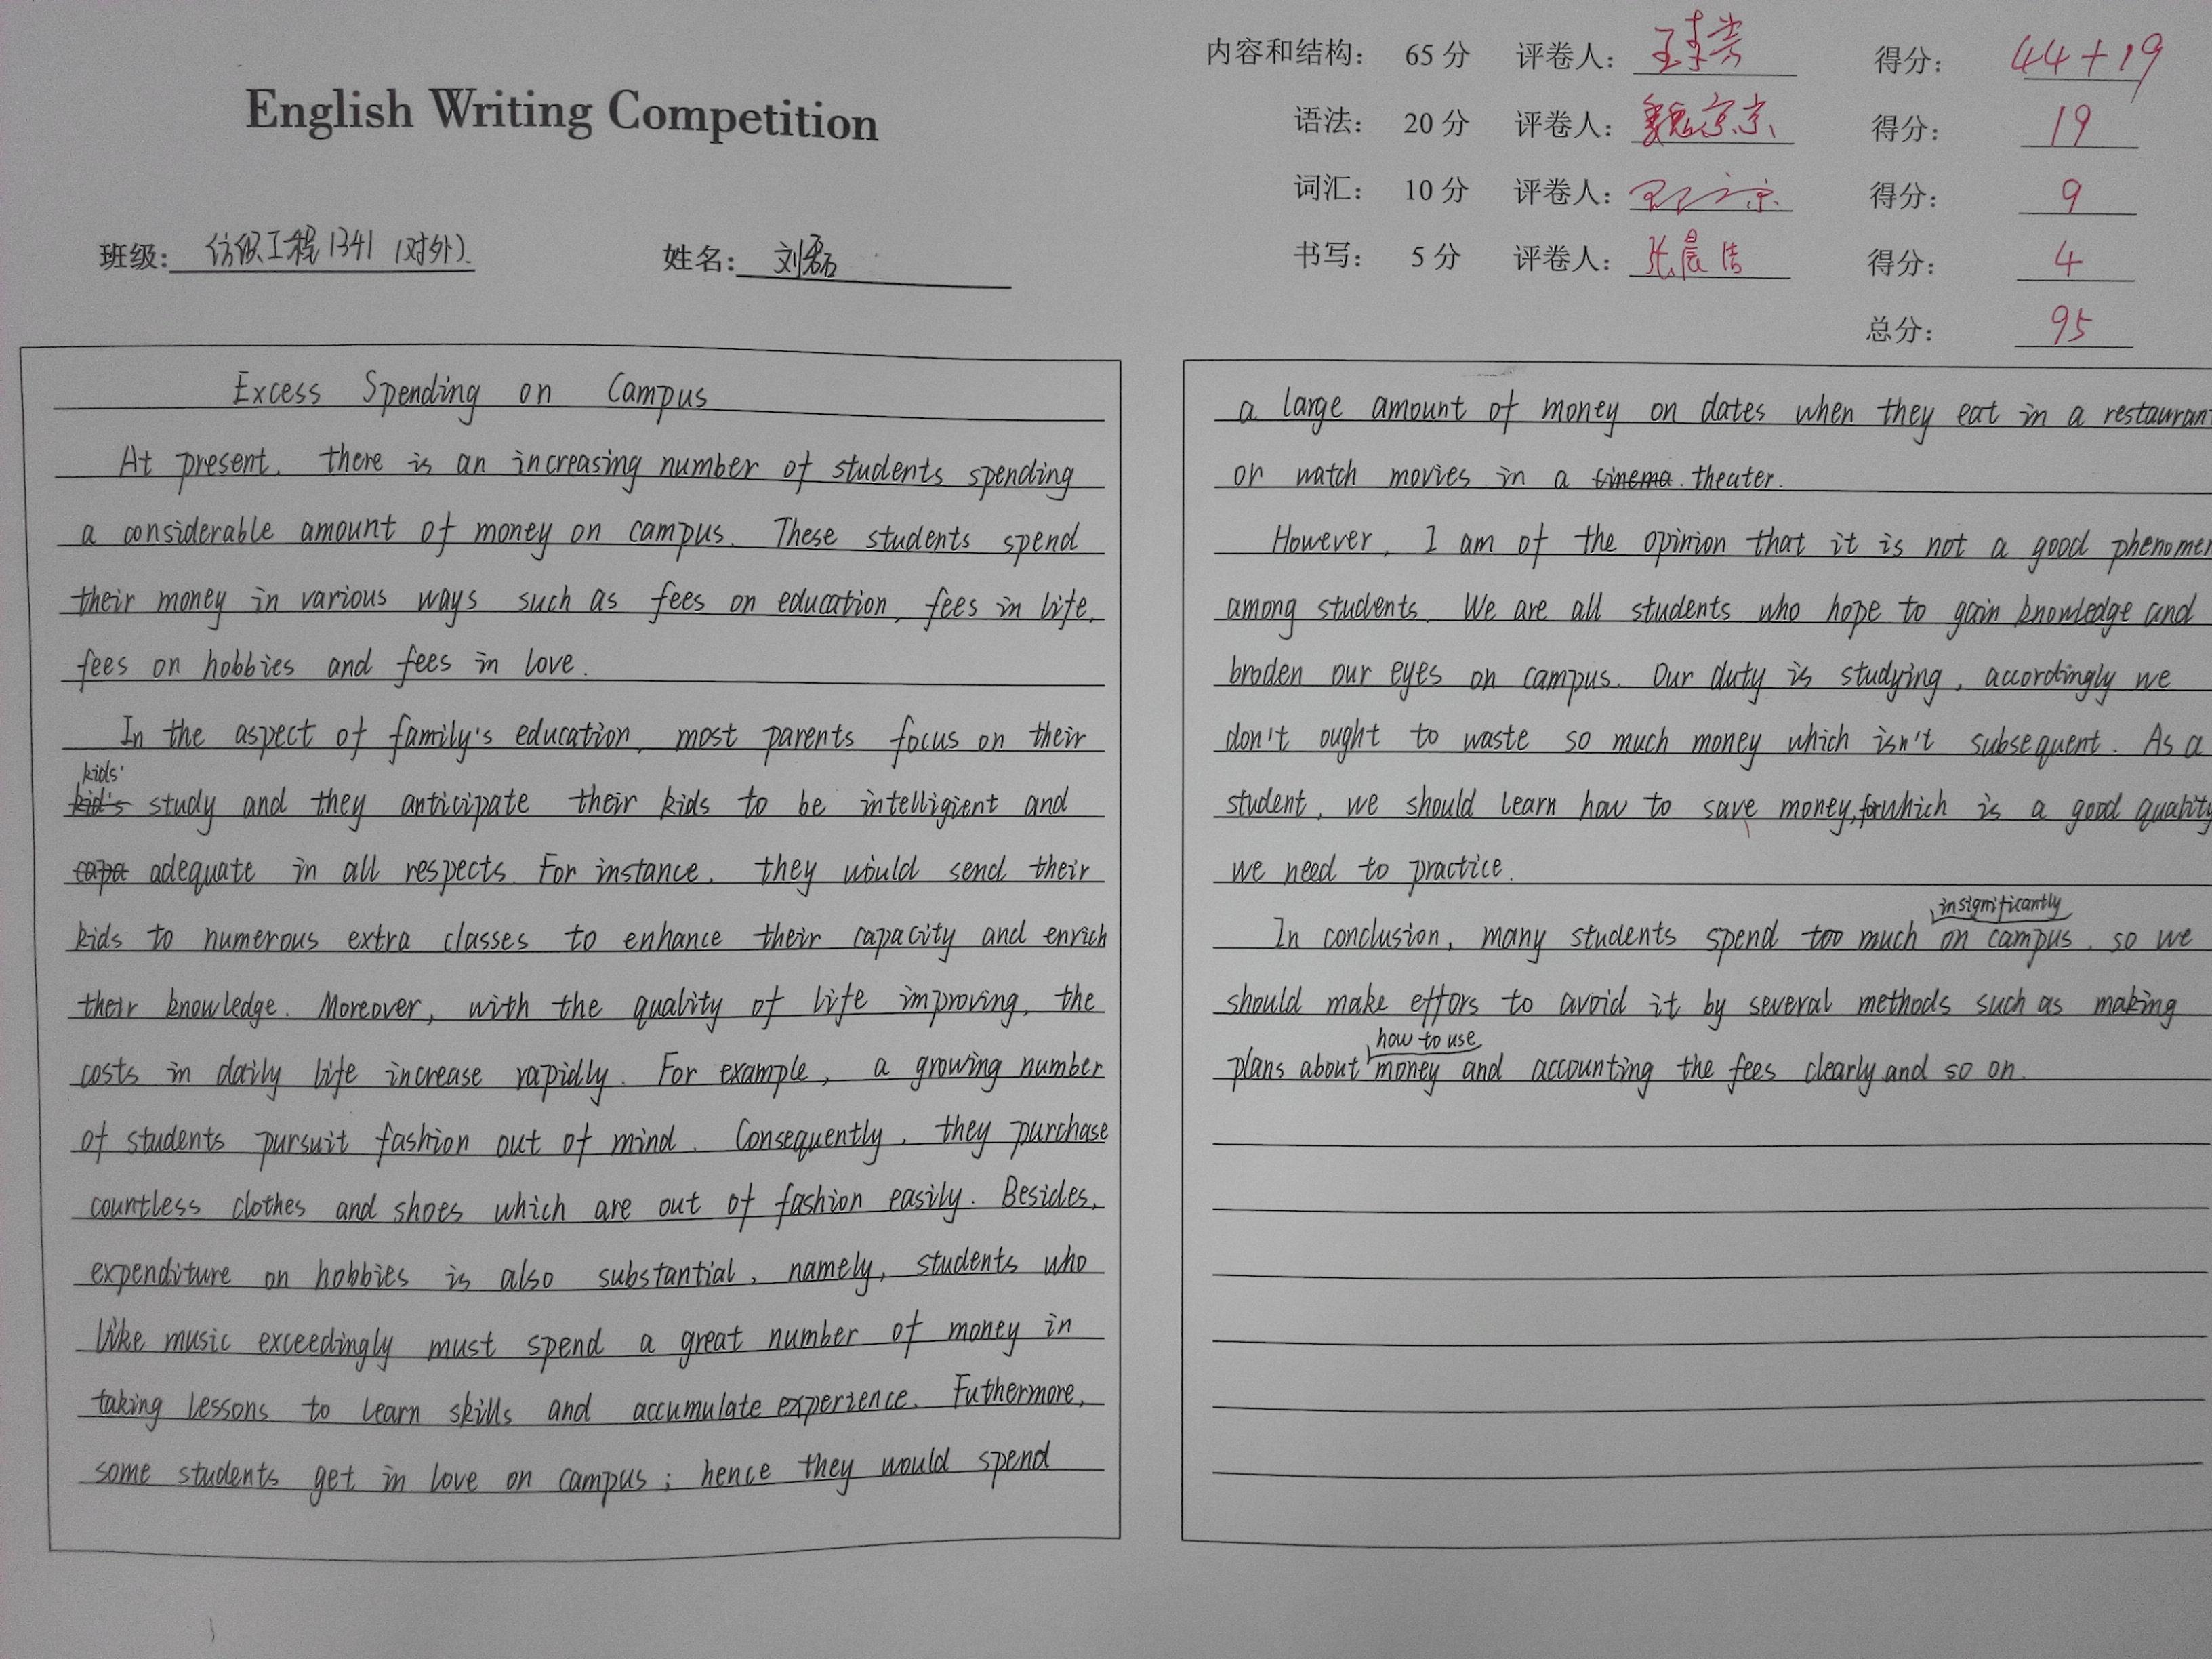 English Writing Competition
班级: 纺织工程1341(对外). 姓名: 刘磊
内容和结构: 65分 评卷人: 得分: 44+19
语法: 20分 评卷人: 魏京京 得分: 19
词汇: 10分 评卷人: 得分: 9
书写: 5分 评卷人: 张晨浩 得分: 4
总分: 95
Excess Spending on Campus
At present, there is an increasing number of students spending
a considerable amount of money on campus. These students spend
their money in various ways such as fees on education, fees in life,
fees on hobbies and fees in love.
In the aspect of family's education, most parents focus on their
kids'
kid's study and they anticipate their kids to be intelligient and
capa adequate in all respects. For instance, they would send their
kids to numerous extra classes to enhance their capacity and enrich
their knowledge. Moreover, with the quality of life improving, the
costs in daily life increase rapidly. For example, a growing number
of students pursuit fashion out of mind. Consequently, they purchase
countless clothes and shoes which are out of fashion easily. Besides,
expenditure on hobbies is also substantial, namely, students who
like music exceedingly must spend a great number of money in
taking lessons to learn skills and accumulate experience. Futhermore,
some students get in love on campus; hence they would spend
a large amount of money on dates when they eat in a restaurant
or watch movies in a cinema. theater.
However, I am of the opinion that it is not a good phenomen
among students. We are all students who hope to gain knowledge and
broden our eyes on campus. Our duty is studying, accordingly we
don't ought to waste so much money which isn't subsequent. As a
student, we should learn how to save money, for which is a good quality
we need to practice.
insignificantly
In conclusion, many students spend too much on campus, so we
should make effors to avoid it by several methods such as making
how to use
plans about money and accounting the fees clearly and so on.